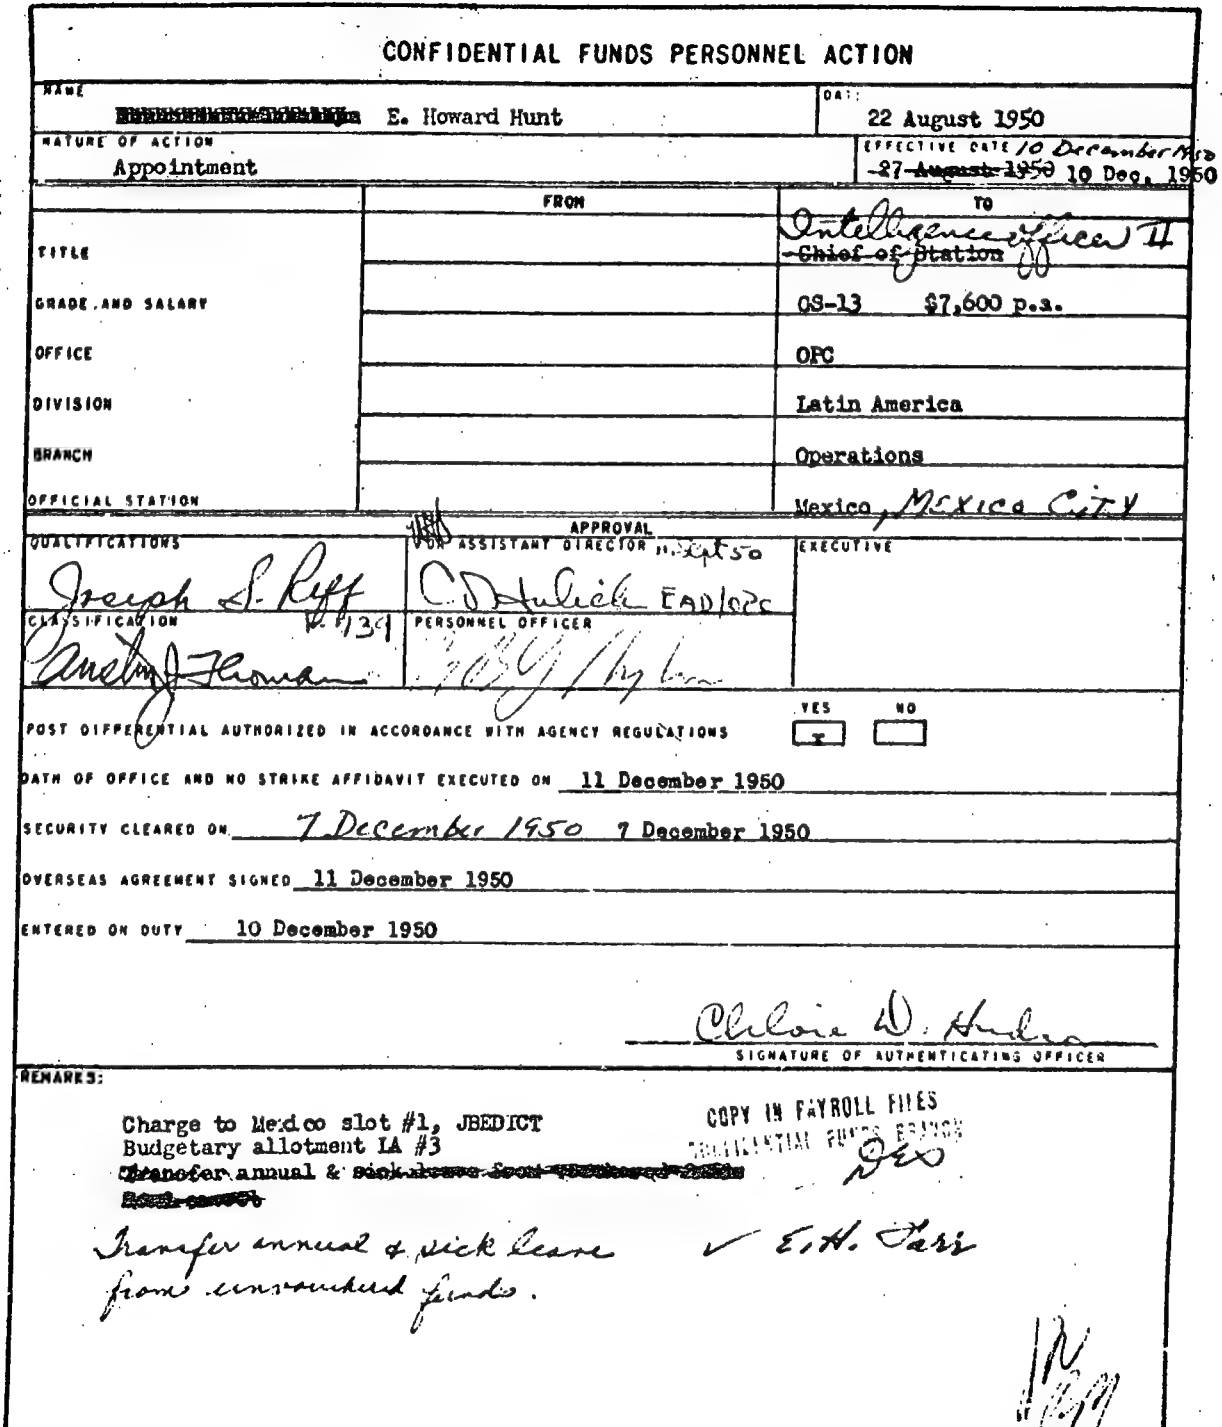 CONFIDENTIAL FUNDS PERSONNEL ACTION
NAME
E. Howard Hunt
DATE
22 August 1950
NATURE OF ACTION
Appointment
EFFECTIVE DATE 10 December 1950
27 August 1950 10 Dec. 1950
FROM
TO
Intelligence officer II
TITLE
Chief of Station
GRADE AND SALARY
GS-13 $7,600 p.a.
OFFICE
OPC
DIVISION
Latin America
BRANCH
Operations
OFFICIAL STATION
Mexico, MEXICO CITY
APPROVAL
QUALIFICATIONS
FOR ASSISTANT DIRECTOR Sept 50
EXECUTIVE
Joseph S. Riff
EAD/OPC
CLASSIFICATION
PERSONNEL OFFICER
Austin J. Thoman
YES
NO
POST DIFFERENTIAL AUTHORIZED IN ACCORDANCE WITH AGENCY REGULATIONS
X
OATH OF OFFICE AND NO STRIKE AFFIDAVIT EXECUTED ON 11 December 1950
SECURITY CLEARED ON 7 December 1950 7 December 1950
OVERSEAS AGREEMENT SIGNED 11 December 1950
ENTERED ON DUTY 10 December 1950
SIGNATURE OF AUTHENTICATING OFFICER
REMARKS:
Charge to Mexico slot #1, JBEDICT
Budgetary allotment LA #3
Transfer annual & sick leave from
COPY IN PAYROLL FILES
CONFIDENTIAL FUNDS BRANCH
Transfer annual & sick leave
from unvouchered funds.
✓ E.H. Tarr